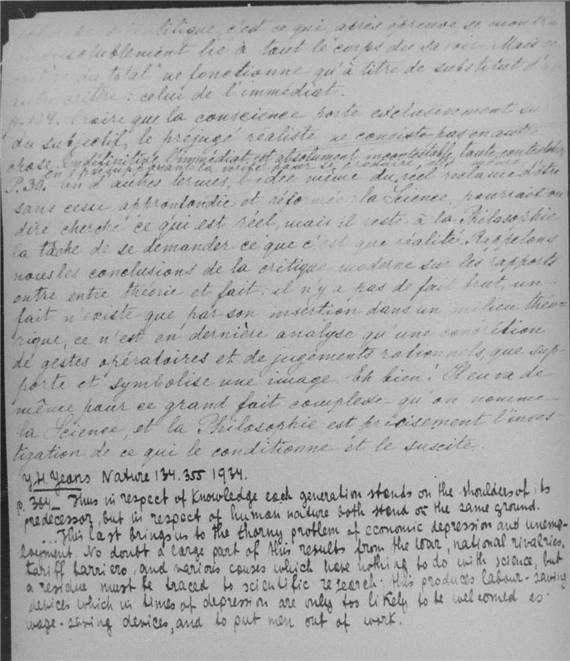 scientifique, c'est ce qui, après épreuve, se montre
indissolublement lié à tout le corps du savoir. Mais ce
"critère du total" ne fonctionne qu'à titre de substitut d'un
autre critère : celui de l'immédiat.
p. 144. Croire que la conscience porte exclusivement sur
du subjectif, le préjugé réaliste ne consiste pas en autre
chose. Par définition l'immédiat est absolument incontestable, toute contestation
en présupposant la
P. 30. En d'autres termes, l'idée même du réel réclame d'être
sans cesse approfondie et réformée : la Science, pourrait-on
dire cherche ce qui est réel, mais il reste à la Philosophie
la tâche de se demander ce que c'est que réalité. Rappelons
nous les conclusions de la critique moderne sur les rapports
entre entre théorie et fait : il n'y a pas de fait brut, un
fait n'existe que par son insertion dans un milieu théo-
rique, ce n'est en dernière analyse qu'une concrétion
de gestes opératoires et de jugements rationnels, que sup-
porte et symbolise une image. Eh bien! Il en va de
même pour ce grand fait complexe qu'on nomme
la Science, et la Philosophie est précisement l'inves-
tigation de ce qui le conditionne et le suscite.
Nature 134. 355 1934.
p. Thus in respect of Knowledge each generation stands on the shoulders of its
predecessor, but in respect of human nature both stand on the same ground.
... This last brings us to the thorny problem of economic depression and unemp-
loyment. No doubt a large part of this results from the war, national rivalries,
tariff barriers, and various causes which have nothing to do with science, but
a residue must be traced to scientific research; this produces labour-saving
devices which in times of depression are only too likely to be welcomed as
wage-saving devices, and to put men out of work.